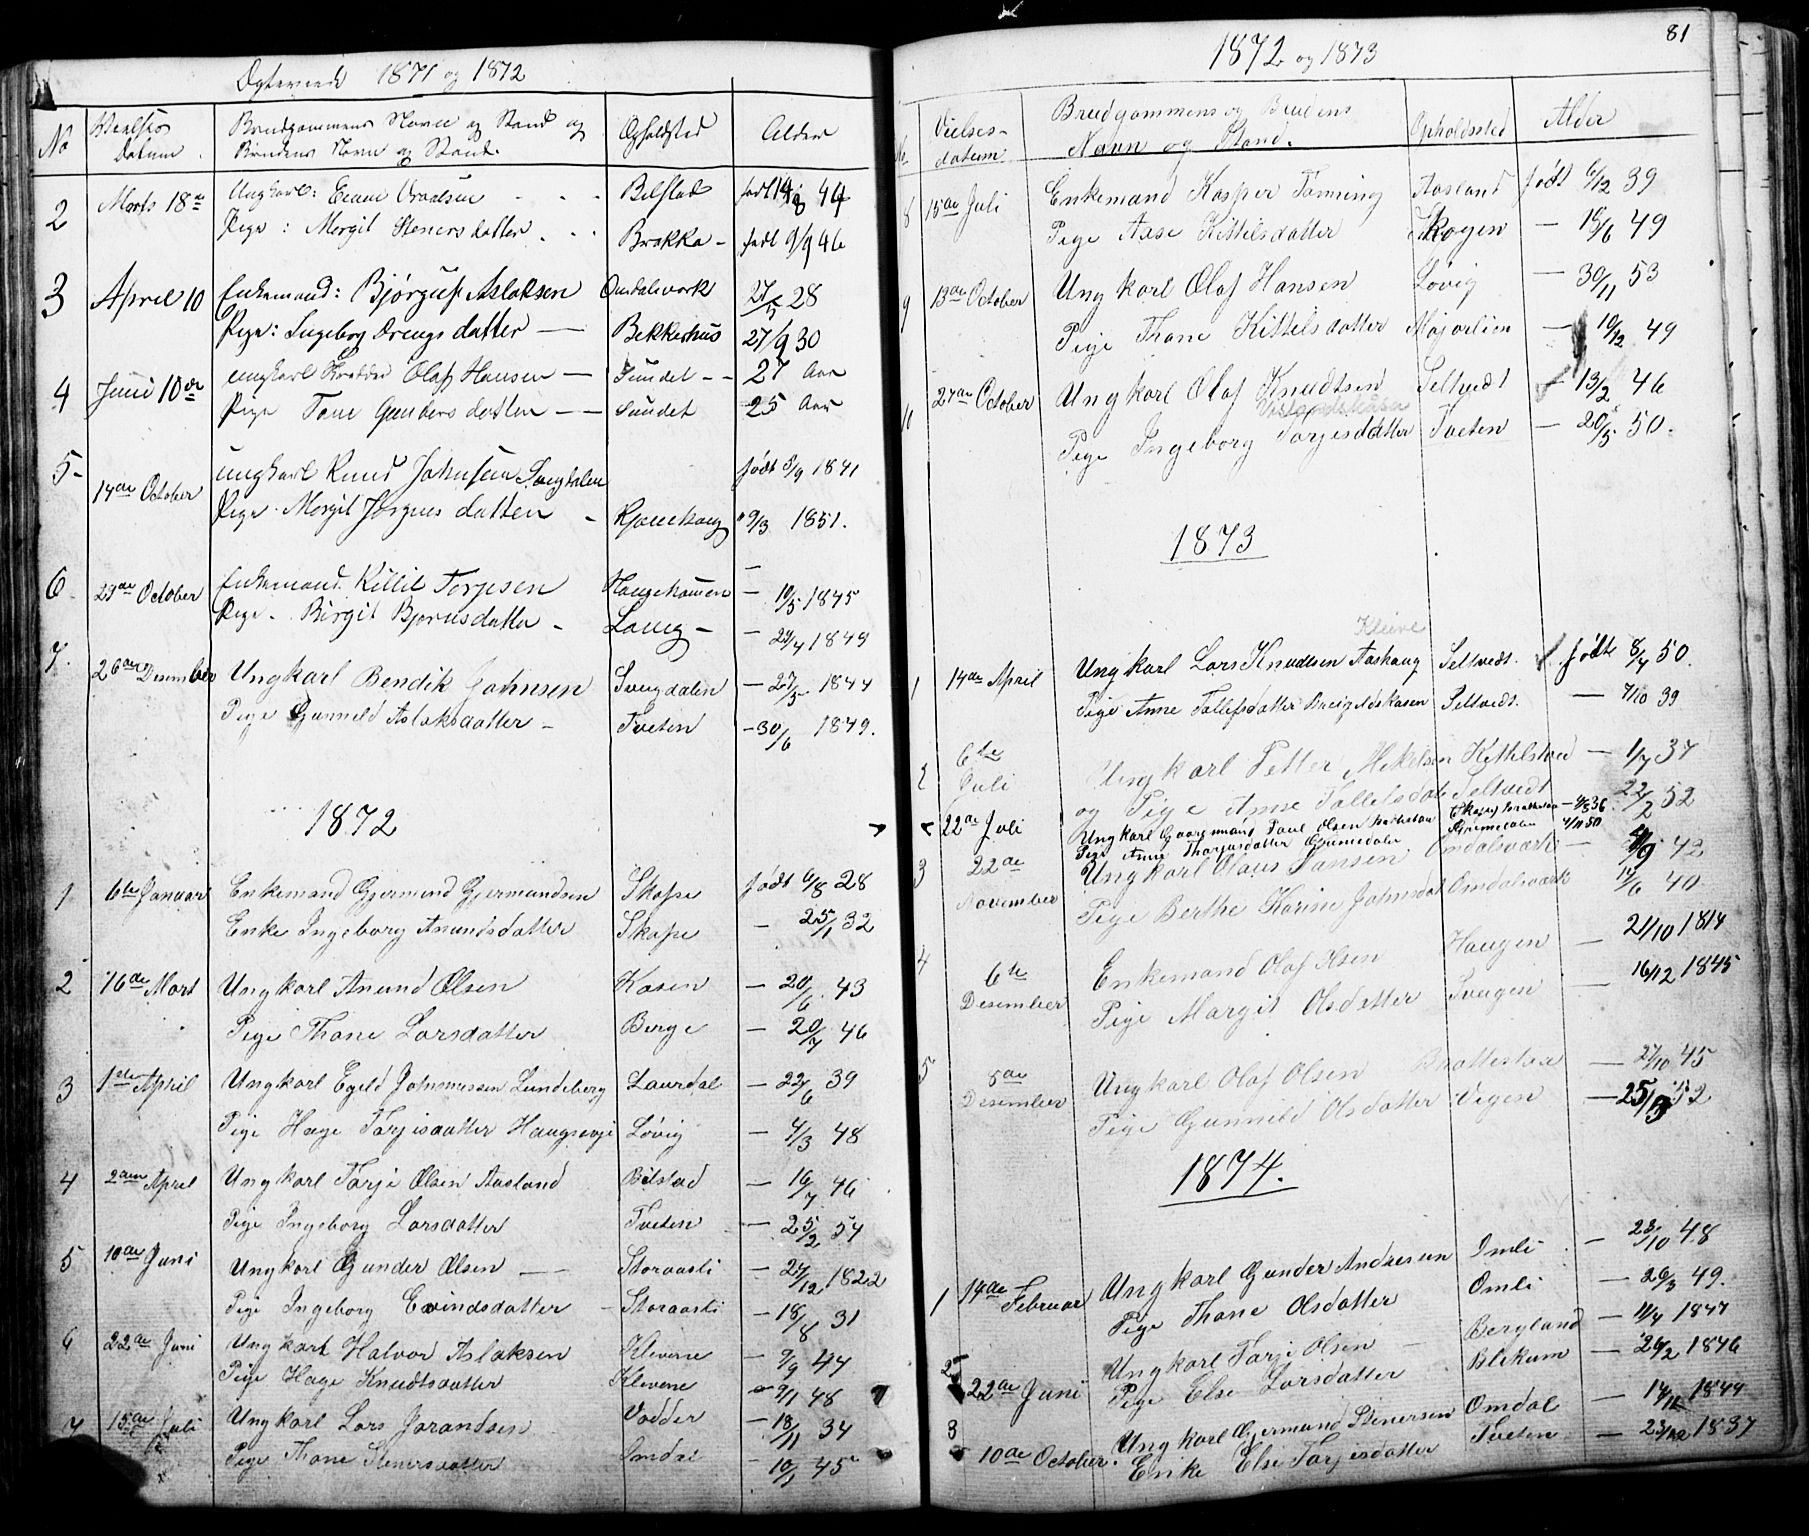 Ægteviede 1871 og 1872
No
Datum
Brudgommens Navn og Stand og
Brudens Navn og Stand
Opholdsted
Alder
2 Marts 18de Ungkarl: Evensen Bilstad født 14/8 44
Pige: Margit Steners datter Brokka født 9/9 46
3 April 10 Enkemand: Bjørguf Aslaksen Omdalsverk 27/5 28
Pige: Ingeborg Drengs datter Bekkerhus 27/9 30
4 Juni 10de ungkarl Olaf Hansen Sundet 27 Aar
Pige Tone Gunders datter Sundet 25 Aar
5 14de October ungkarl Knud Johnsen Svegdalen født 8/9 1841
Pige Margit Jørgens datter 9/3 1851.
6 29de October Enkemand Killil Torjesen Haugekaasen 10/5 1845
Pige Birgit Bjørnsdatter Laug 29/4 1849
7. 26de Desember Ungkarl Bendik Johnsen Svegdalen 27/5 1844
Pige Gunneld Aslaksdatter Tveten 30/6 1849.
1872
1 6te Januar Enkemand Gjermund Gjermundsen Skafse født 6/8 28
Enke Ingeborg Anundsdatter Skafse 25/1 32
2 16de Mart Ungkarl Anund Olsen Kasen 20/6 43
Pige Thone Larsdatter Berge 20/7 46
3 1ste April Ungkarl Egeld Johannessen Lundeberg Laurdal 22/6 39
Pige Hage Tarjisdatter Haugsevje Løvig 4/3 48
4 2den April Ungkarl Tarje Olsen Aasland Bilstad 16/7 46
Pige Ingeborg Larsdatter Tveten 25/2 54
5 10de Juni Ungkarl Gunder Olsen Storaasli 27/12 1822
Pige Ingeborg Evindsdatter Storaasli 18/8 31
6 22de Juni Ungkarl Halvor Aslaksen Klevene 9/9 44
Pige Hage Knudtsdatter Klevene 9/1 48
7 15de Juli Ungkarl Lars Jørandsen Vadder 18/11 34
Pige Thone Stenersdatter Omdal 10/1 45
81
1872 og 1873
No.
Vielses-
datum
Brudgommens og Brudens
Navn og Stand.
Opholdssted
Alder
8 15de Juli Enkemand Kasper Tønning Aasland født 6/12 39
Pige Aase Kittelsdatter Skogen 15/6 49
9 13de October Ungkarl Olaf Hansen Løvig 30/11 53
Pige Thone Kittelsdatter 10/12 49
10 27de October Ungkarl Olaf Knudtsen Seltvedt 13/2 46
Pige Ingeborg Tarjesdatter Tveten 20/5 50.
1873
Kleive
1 14de April Ungkarl Lars Knudtsen Aashaug Seltvedt. født 8/4 50.
Pige Anne Tallefsdatter Seltvedt. 7/10 39
2 6te Juli Ungkarl Petter Mikelsen Kittelstad 1/7 37
og Pige Anne Tallefsdat Seltvedt 22/2 52
22de Juli Ungkarl Gaardmand Paul Olsen 4/3 36
Pige Anne Thorjusdatter Grimedalen 4/11 50
3 22de November Ungkarl Olaus Jansen Omdalsværk 42
Pige Berthe Karine Johnsdat Omdalsværk 14/6 40
4 6te Desember Enkemand Olaf Olsen Haugen 21/10 1814
Pige Margit Olsdatter Sveigen 16/12 1845
5 5de Desember Ungkarl Olaf Olsen Brattestaa 27/10 45
Pige Gunneld Olsdatter Vegen 25/3 52
1874.
1 14de Februar Ungkarl Gunder Andresen Omli 23/10 48
Pige Thone Olsdatter Omli 26/3 49.
2 22de Juni Ungkarl Tarje Olsen Bergland 11/4 1847
Pige Else Larsdatter Blekum 26/2 1846
3 10de October. Ungkarl Gjermund Stenersen Omdal 14/11 1844
Enke Else Tarjesdatter Tveten 23/12 1837